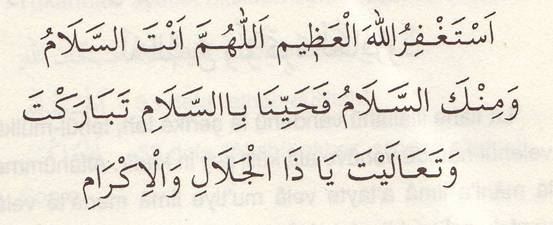 اَسْتَغْفِرُ اللهَ الْعَظِيم اَللّٰهُمَّ اَنْتَ السَّلَامُ
وَمِنْكَ السَّلَامُ فَحَيِّنَا بِاالسَّلَامِ تَبَارَكْتَ
وَتَعَالَيْتَ يَا ذَا الْجَلَالِ وَالْاِكْرَامِ